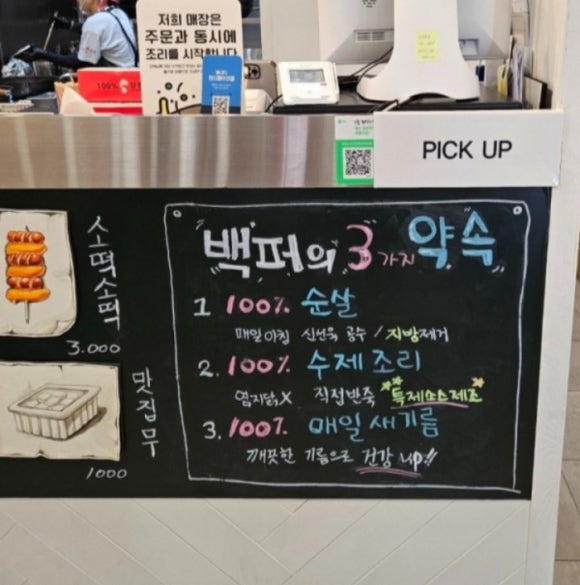 저희 매장은
주문과 동시에
조리를 시작합니다
100%
PICK UP
소떡소떡
3.000
맛집무
1000
"백퍼의 3가지 약속"
1 100% 순살
매일아침 신선육 공수 / 지방제거
2. 100% 수제조리
염지닭X 직접반죽 특제소스제조
3. 100% 매일새기름
깨끗한 기름으로 건강 up!!